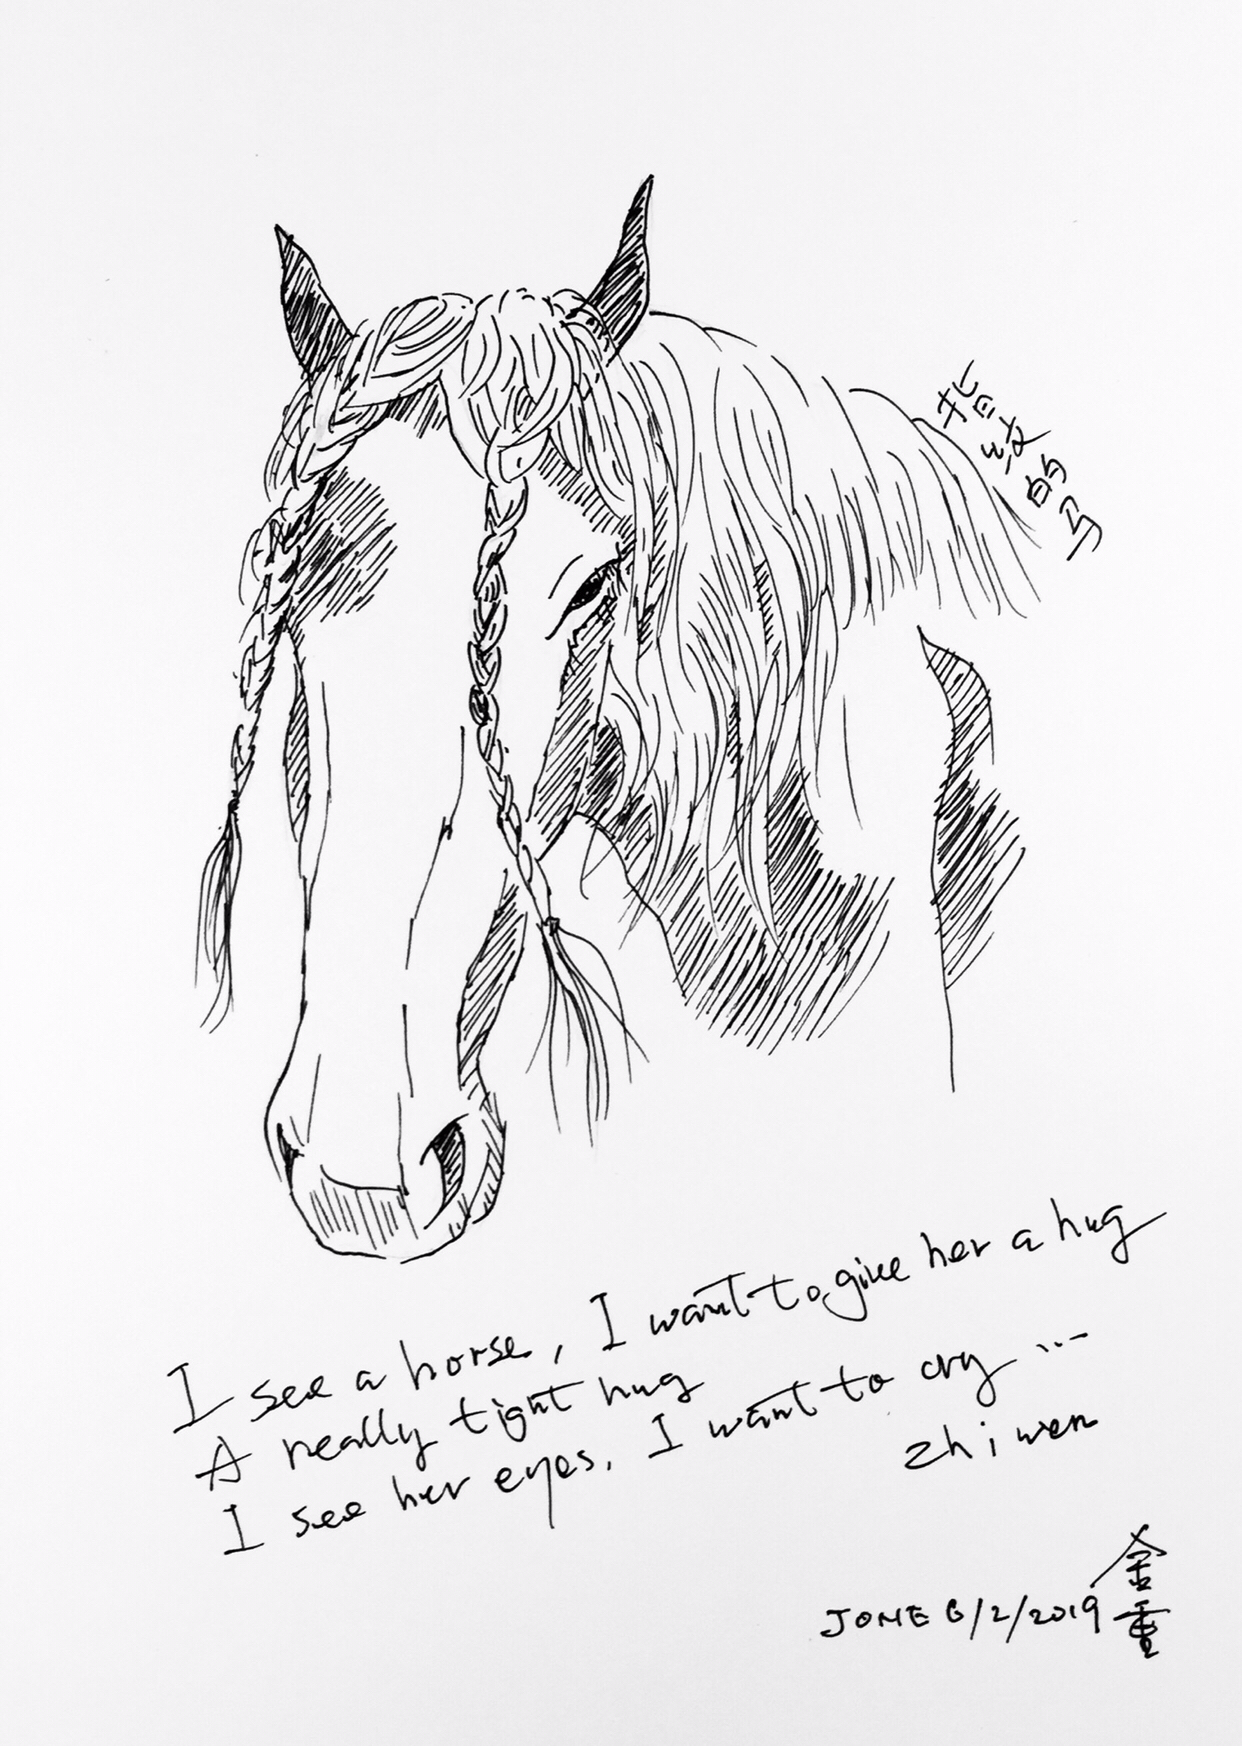 的马
I see a horse, I want to give her a hug
A really tight hug
I see her eyes, I want to cry ...
zhiwen
JONE 6/2/2019
金重